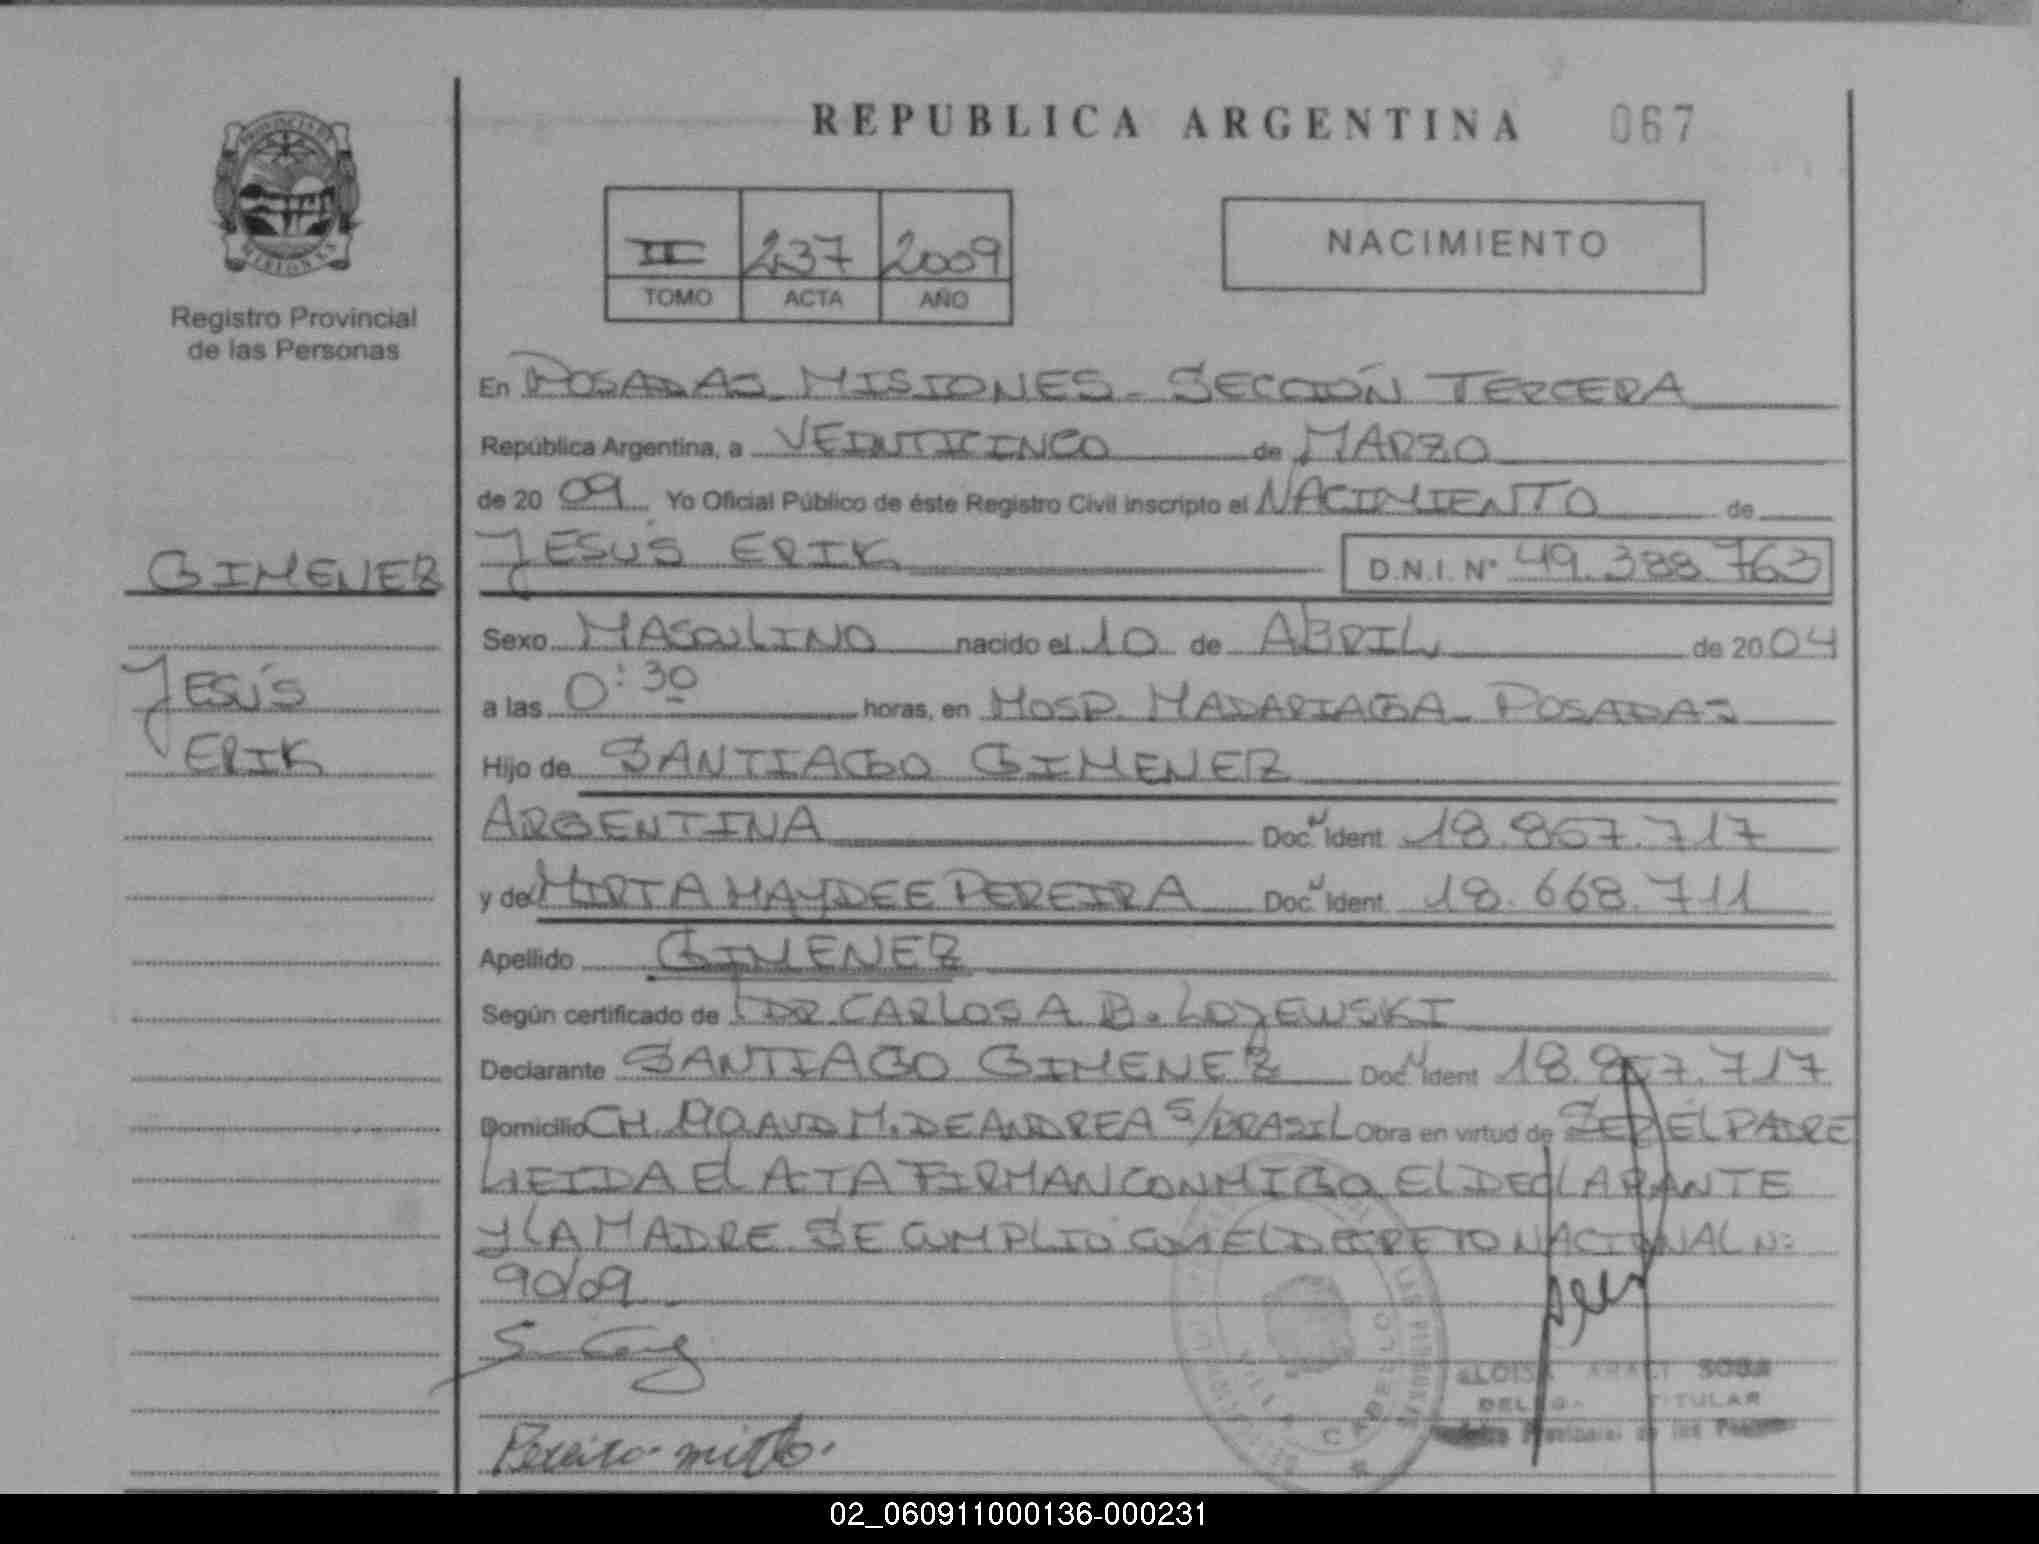 REPUBLICA ARGENTINA 067
PROVINCIA DE
MISIONES
Registro Provincial
de las Personas
II 237 2009
TOMO ACTA AÑO
NACIMIENTO
En POSADAS MISIONES - SECCIÓN TERCERA
República Argentina, a VEINTICINCO de MARZO
de 20 09 Yo Oficial Público de éste Registro Civil inscripto el NACIMIENTO de
GIMENEZ
JESÚS ERIK D.N.I. Nº 49.388.763
Sexo MASCULINO nacido el 10 de ABRIL de 20 04
JESÚS
ERIK
a las 0:30 horas, en HOSP. MADARIAGA - POSADAS
Hijo de SANTIAGO GIMENEZ
ARGENTINA Doc. N Ident 18.857.717
y de MIRTA HAYDEE PEREIRA Doc. N Ident 18.668.711
Apellido GIMENEZ
Según certificado de DR. CARLOS A. B. LOJEWSKI
Declarante SANTIAGO GIMENEZ Doc. N Ident 18.857.717
Domicilio CH. 190 AVD M. DE ANDREA S/BRASIL Obra en virtud de SER EL PADRE
LEIDA EL ACTA FIRMAN CONMIGO EL DECLARANTE
Y LA MADRE SE CUMPLIO CON EL DECRETO NACIONAL Nº
90/09
VILLA CABELLO
SOSA
TITULAR
Provincial de las
Pereira mirta.
02_060911000136-000231